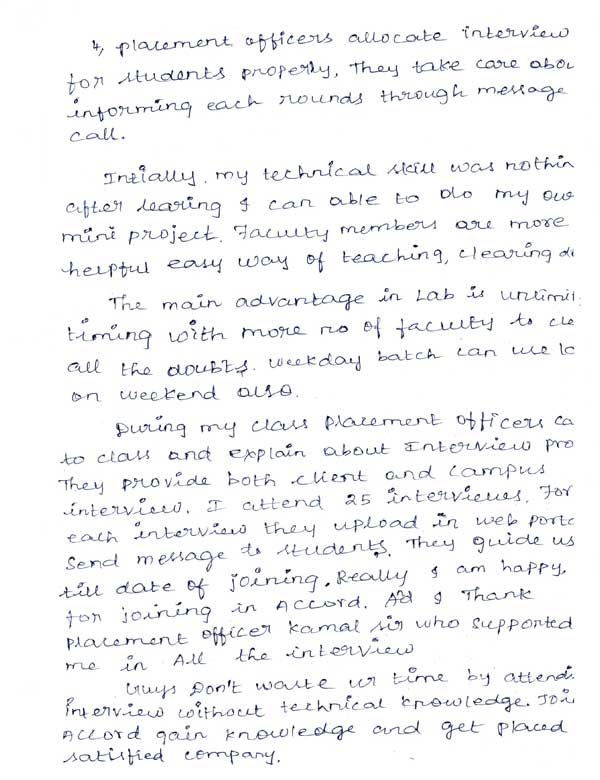 4, placement officers allocate interview
for students properly, They take care abou
informing each rounds through message
call.
Intially, my technical skill was nothin
after learing I can able to do my ow
mini project. Faculty members are more
helpful easy way of teaching, clearing d
The main advantage in Lab is unlimit
timing with more no of faculty to cle
all the doubts. weekday batch can use l
on weekend also.
During my class placement officers ca
to class and explain about Interview pro
They provide both client and campus
interview. I attend 25 interviews. For
each interview they upload in web porta
send message to students. They guide us
till date of joining. Really I am happy,
for joining in Accord. Ad I Thank
placement officer kamal sir who supported
me in All the interview
Guys Don't waste ur time by attendi
interview without technical knowledge. Joi
Accord gain knowledge and get placed
satisfied company.